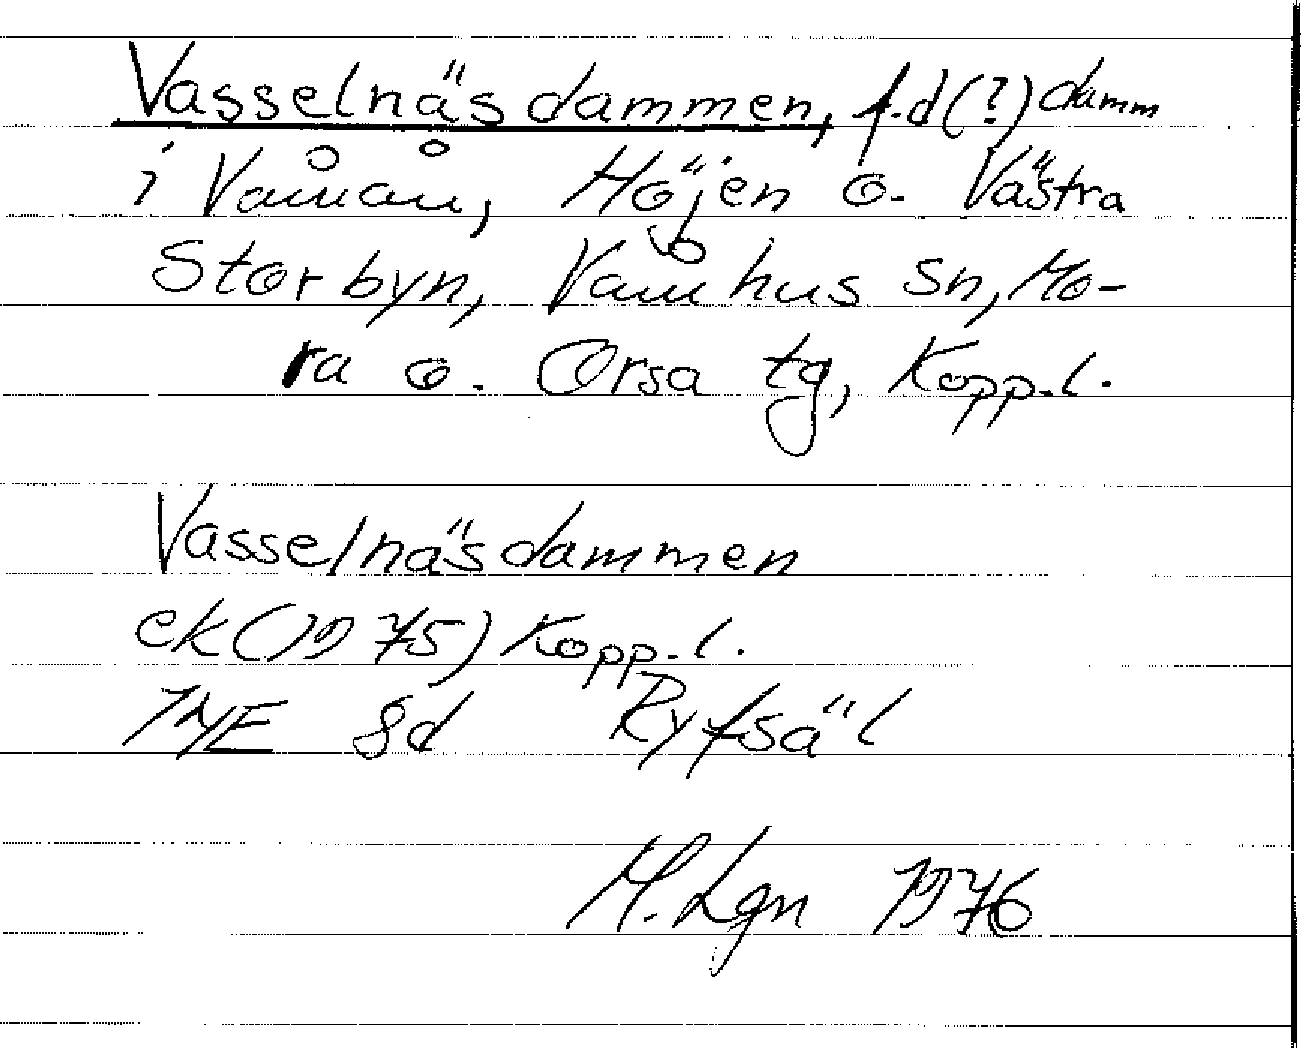 Vasselnäsdammen, f.d(?) damm
i Våmån, Höjen o. Västra
Storbyn, Våmhus sn, Mo-
ra o. Orsa tg, Kopp.l.
Vasselnäsdammen
ek(1975) Kopp.l.
14E 8d Ryfsäl
M. Lgn 1976